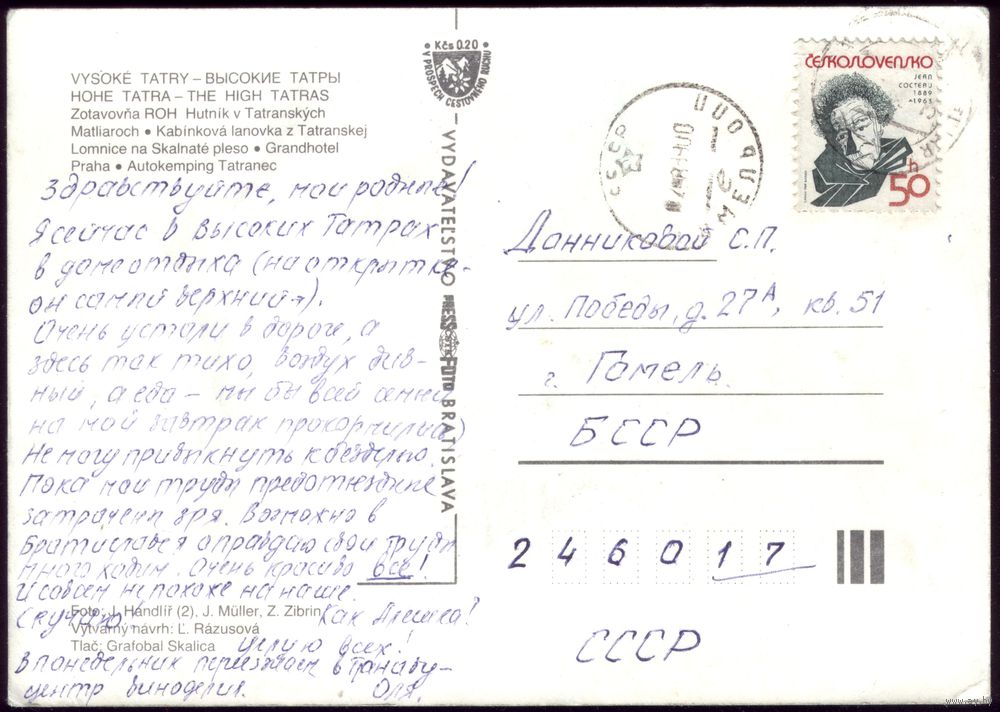 VYSOKÉ TATRY – ВЫСОКИЕ ТАТРЫ
HOHE TATRA – THE HIGH TATRAS
Zotavovňa ROH Hutník v Tatranských
Matliaroch • Kabínková lanovka z Tatranskej
Lomnice na Skalnaté pleso • Grandhotel
Praha • Autokemping Tatranec
Здравствуйте, мои родные!
Я сейчас в Высоких Татрах
в доме отдыха (на открытке-
он самый верхний →).
Очень устали в дороге, а
здесь так тихо, воздух див-
ный, а еда – мы бы всей семьёй
на мой завтрак прокормились)
Не могу привыкнуть к безделью.
Пока мои труды предотъездные
затрачены зря. Возможно в
Братиславе я оправдаю свои труды
много ходим. Очень красиво все!
И совсем не похоже на наше.
Скучаю. Как Алешка?
Foto: J. Handlíř (2), J. Müller, Z. Zibrin
Výtvarný návrh: Ľ. Rázusová
Tlač: Grafobal Skalica
Целую всех!
В понедельник переезжаем в Трнаву-
центр виноделия. Оля.
• Kčs 0.20 •
V PROSPECH CESTOVNÉHO RUCHU
VYDAVATEĽSTVO
PRESSFOTO
BRATISLAVA
СССР
ČESKOSLOVENSKO
JEAN
COCTEAU
1889
1963
50 h
Данниковой С.П.
ул. Победы, д. 27А, кв. 51
г. Гомель
БССР
246017
СССР
www.ay.by